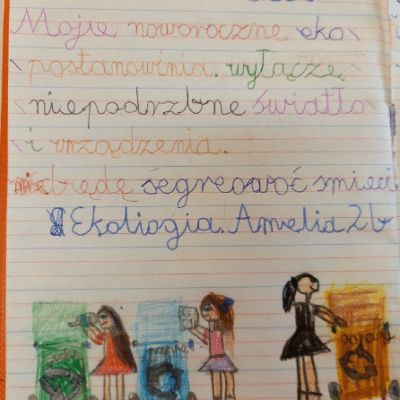 Moje noworoczne eko
postanowinia. wyłączę
niepodrzbne światło
i urządzenia.
będę segreować śmieci.
Ekoliogia. Amelia 2b